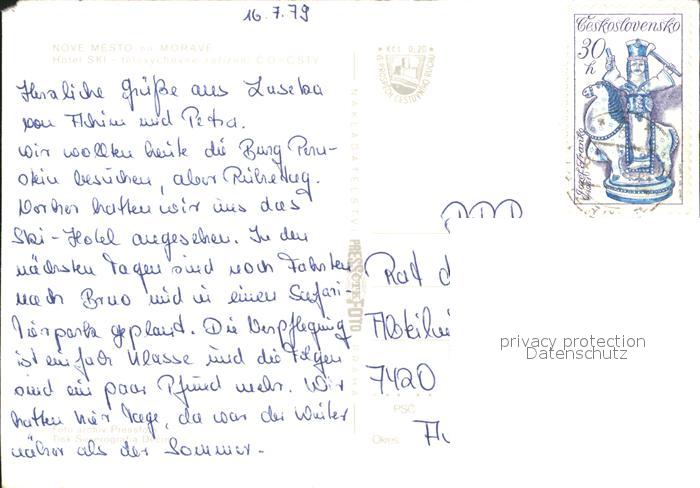 16.7.79
NOVE MESTO na MORAVE
Hotel SKI - tělovýchovné zařízení ČO - ČSTV
Kčs 0,20
Československo
30
h
Herzliche Grüße aus
von Achim und Petra.
Wir wollten heute die Burg Pern-
stein besuchen, aber Ruhetag.
Vorher hatten wir uns das
Ski-Hotel angesehen. In den
nächsten Tagen sind noch Fahrten
nach Brno und in einen Safari-
Tierpark geplant. Die Verpflegung
ist einfach Klasse und die Folgen
sind ein paar Pfund mehr. Wir
hatten hier Tage, da war der Winter
näher als der Sommer.
NAKLADATELSTVÍ
PRESSFOTO
PRAHA
DDR
Rat d
7420
PSC
Okres
Foto archiv Pressfoto
privacy protection
Datenschutz